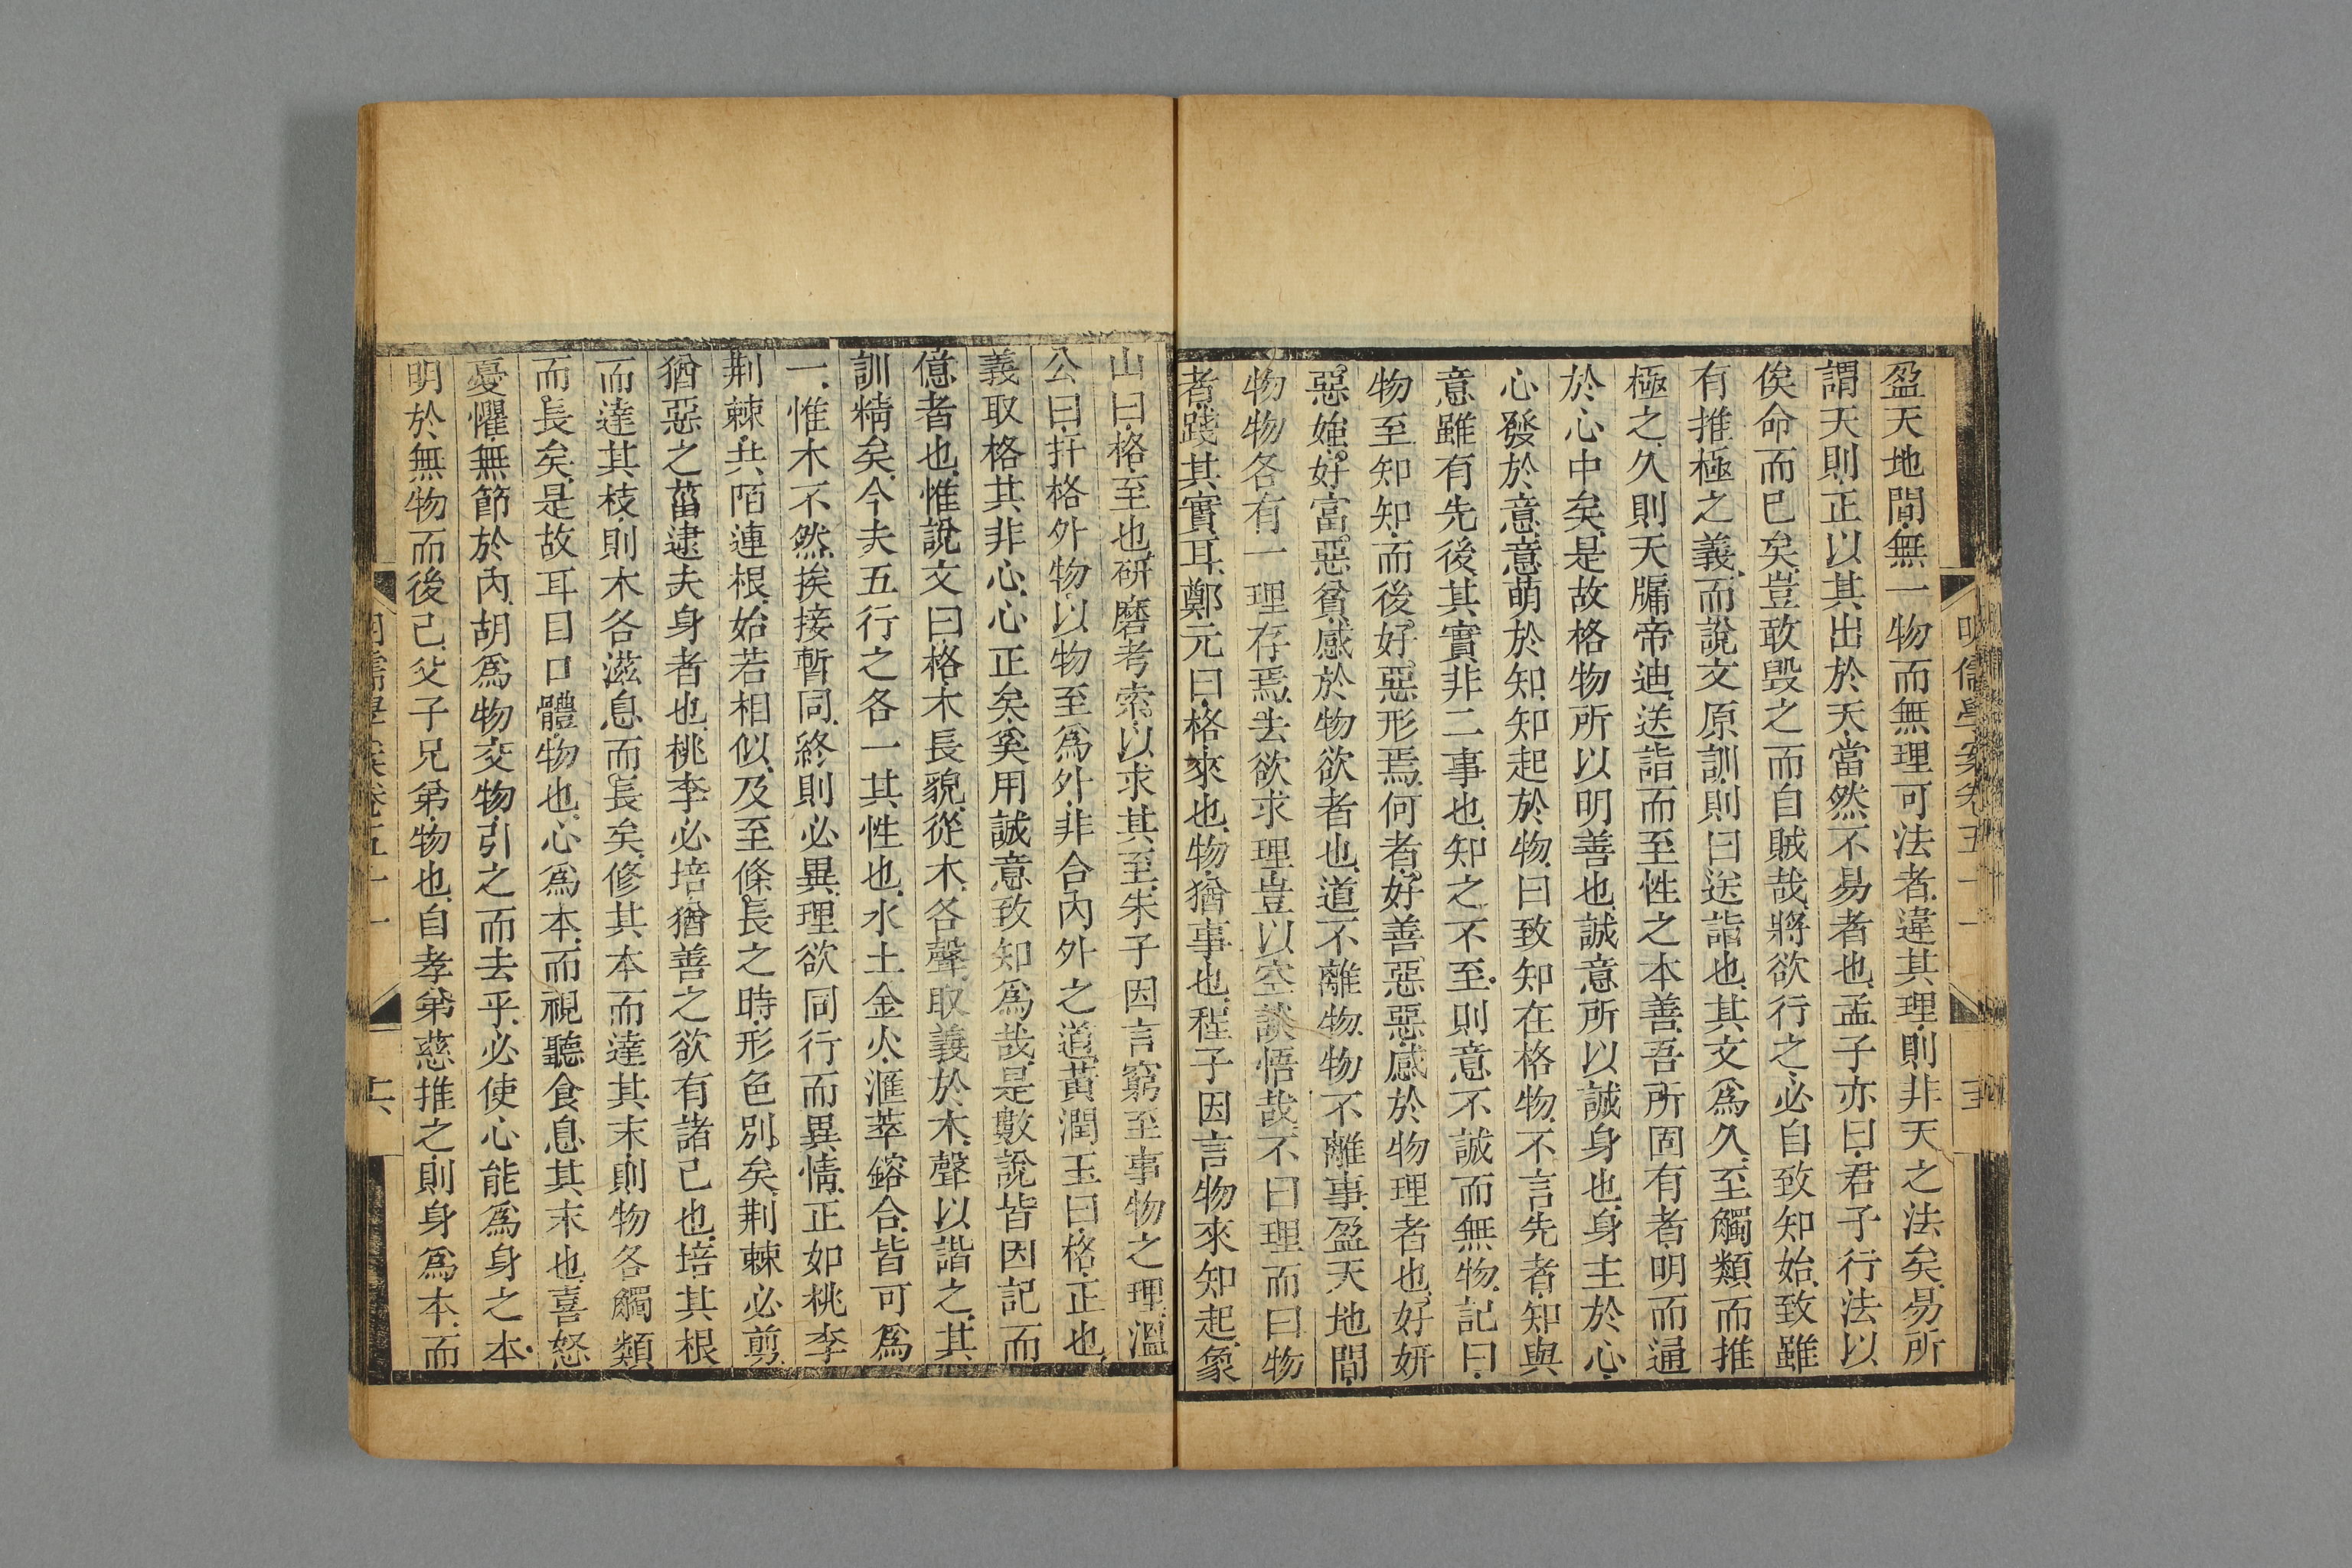 盈天地間無一物而無理可法者違其理則非天之法矣易所
謂天則正以其出於天當然不易者也孟子亦曰君子行法以
俟命而已矣豈敢毁之而自賊哉將欲行之必自致知始致雖
有推極之義而說文原訓則曰送詣也其文爲久至觸類而推
極之久則天牖帝迪送詣而至性之本善吾所固有者明而通
於心中矣是故格物所以明善也誠意所以誠身也身主於心
心發於意意萌於知知起於物曰致知在格物不言先者知與
意雖有先後其實非二事也知之不至則意不誠而無物記曰
物至知知而後好惡形焉何者好善惡惡感於物理者也好妍
惡媸好富惡貧感於物欲者也道不離物物不離事盈天地間
物物各有一理存焉去欲求理豈以空談悟哉不曰理而曰物
者踐其實耳鄭元曰格來也物猶事也程子因言物來知起象
山曰格至也研磨考索以求其至朱子因言窮至事物之理溫
公曰扞格外物以物至爲外非合內外之道黃潤玉曰格正也
義取格其非心心正矣奚用誠意致知爲哉是數說皆因記而
億者也惟說文曰格木長貌從木各聲取義於木聲以諧之其
訓精矣今夫五行之各一其性也水土金火滙萃鎔合皆可爲
一惟木不然挨接暫同終則必異理欲同行而異情正如桃李
荆棘共陌連根始若相似及至條長之時形色別矣荆棘必剪
猶惡之菑逮夫身者也桃李必培猶善之欲有諸己也培其根
而達其枝則木各滋息而長矣修其本而達其末則物各觸類
而長矣是故耳目口體物也心爲本而視聽食息其末也喜怒
憂懼無節於內胡爲物交物引之而去乎必使心能爲身之本
明於無物而後己父子兄弟物也自孝弟慈推之則身爲本而